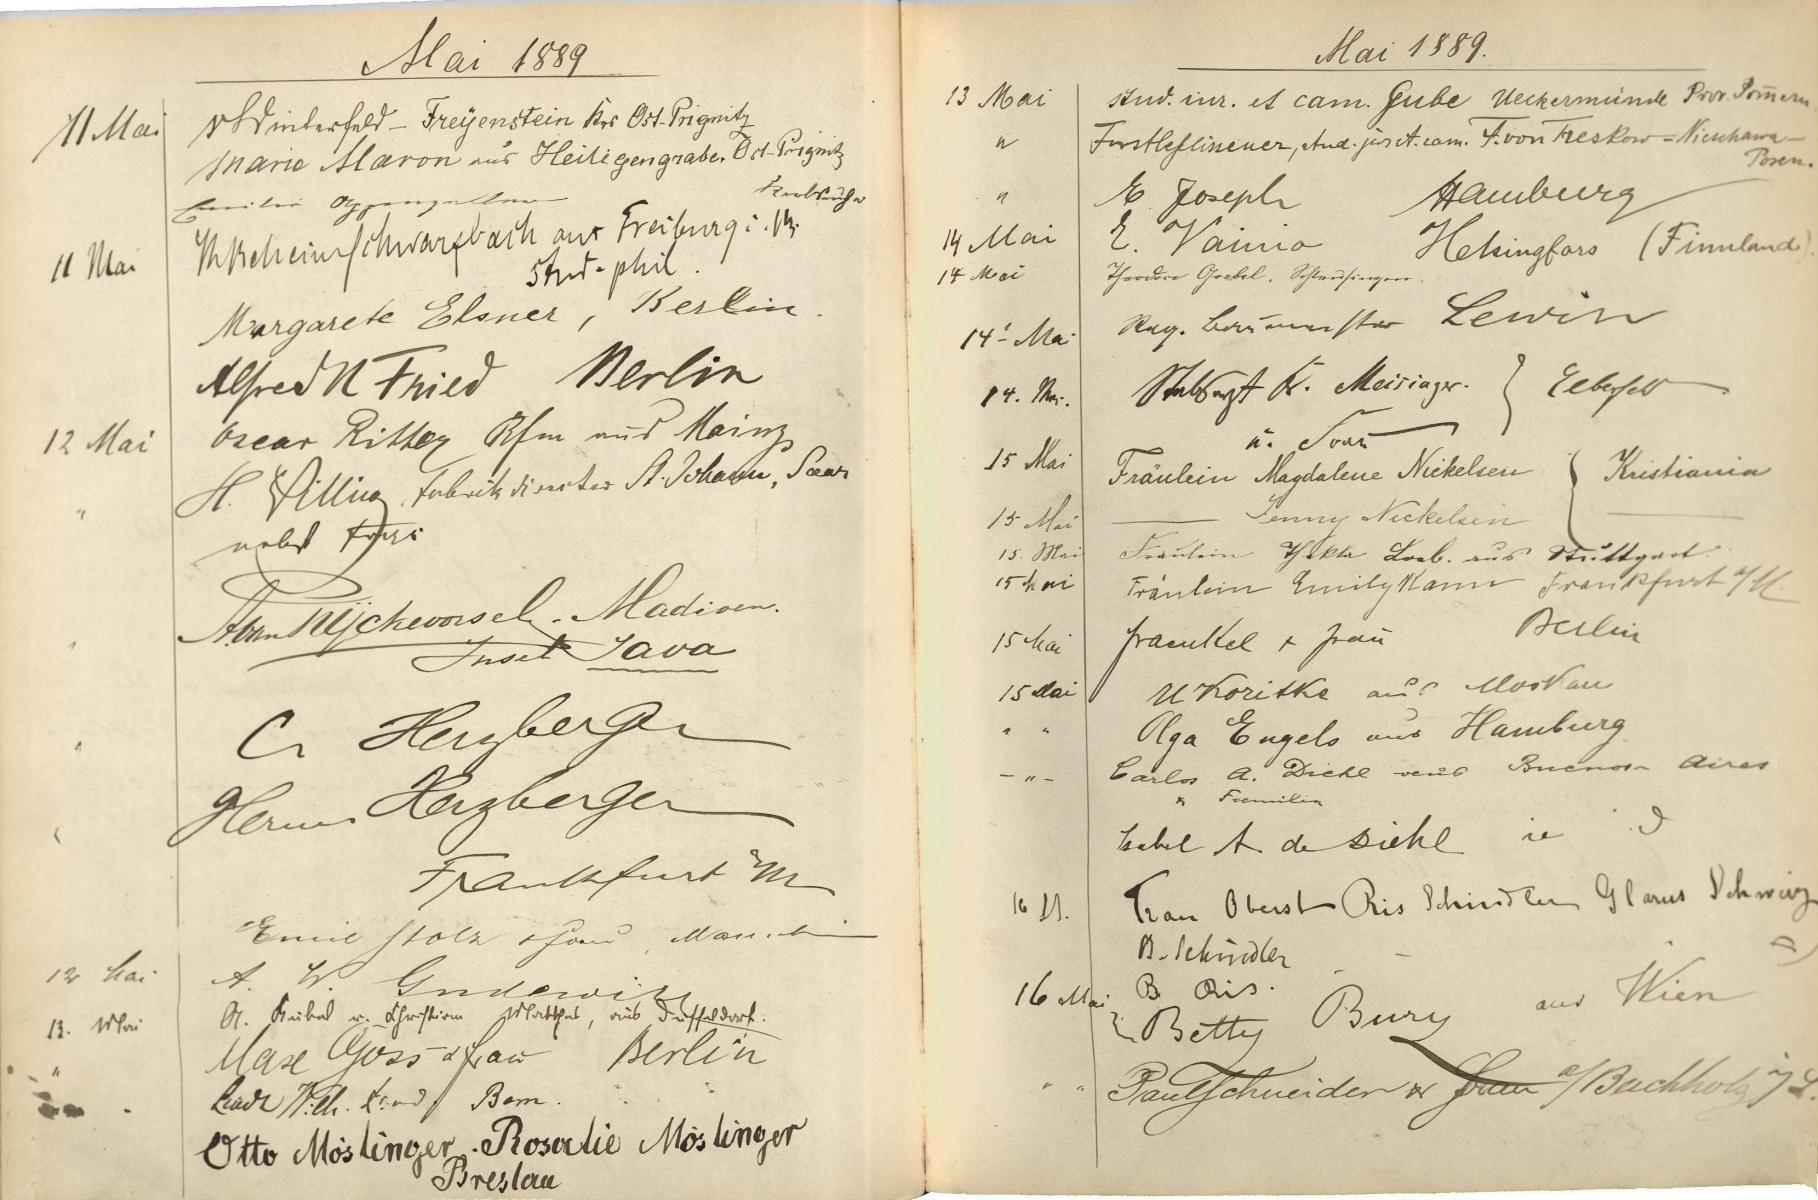 Mai 1889
11 Mai
v Winterfeld - Freyenstein Krs Ost-Prignitz
Marie Maron aus Heiligengrabe. Ost-Prignitz
11 Mai
Schwarzbach aus Freiburg i.
stud-phil.
Margarete Elsner, Berlin.
Alfred H Fried Berlin
12 Mai
Oscar Ritter Kfm aus Mainz
" H. Villing Fabrikdirector St. Johann, Saar
nebst Frau
" Rijckevorsel - Madioen.
Insel Java
" C Herzberger
Herm Herzberger
Frankfurt a/M
Emil Stolz & Frau, Mannheim
12 Mai A. W.
13. Mai A. Kubel u. Christian, aus Düsseldorf.
" Max Goss & Frau Berlin
Wilh. Bern.
Otto Möslinger. Rosalie Möslinger
Breslau
Mai 1889.
13 Mai stud. iur. et cam. Gube Ueckermünde Prov. Pomern
" stud. jur. et. cam. F. von Treskow - Nieschawa -
Posen.
" E. Joseph Hamburg
14 Mai E. Vainio Helsingfors (Finnland).
14 Mai Theodor Goebel. Schleusingen.
14 Mai Reg. Baumeister Lewin
14. Mai. Stabsarzt Dr. Meisinger. Elberfeld
u. Frau
15 Mai Fräulein Magdalene Nickelsen Kristiania
15 Mai Jenny Nickelsen
15. Mai Fräulein Thekla aus Stuttgart.
15 Mai Fräulein Emily Kann Frankfurt a/M.
15 Mai Fraenkel & Frau Berlin
15 Mai U Koritke aus Moskau
" " Olga Engels aus Hamburg
- " - Carlos A. Diehl aus Buenos Aires
& Familie
Isabel A. de Diehl
16 M. Frau Oberst Ris Schindler Glarus Schweiz
B. Schindler
B Ris.
16 Mai Betty Bury aus Wien
" " Paul Schneider & Frau a/ Buchholz i/S.